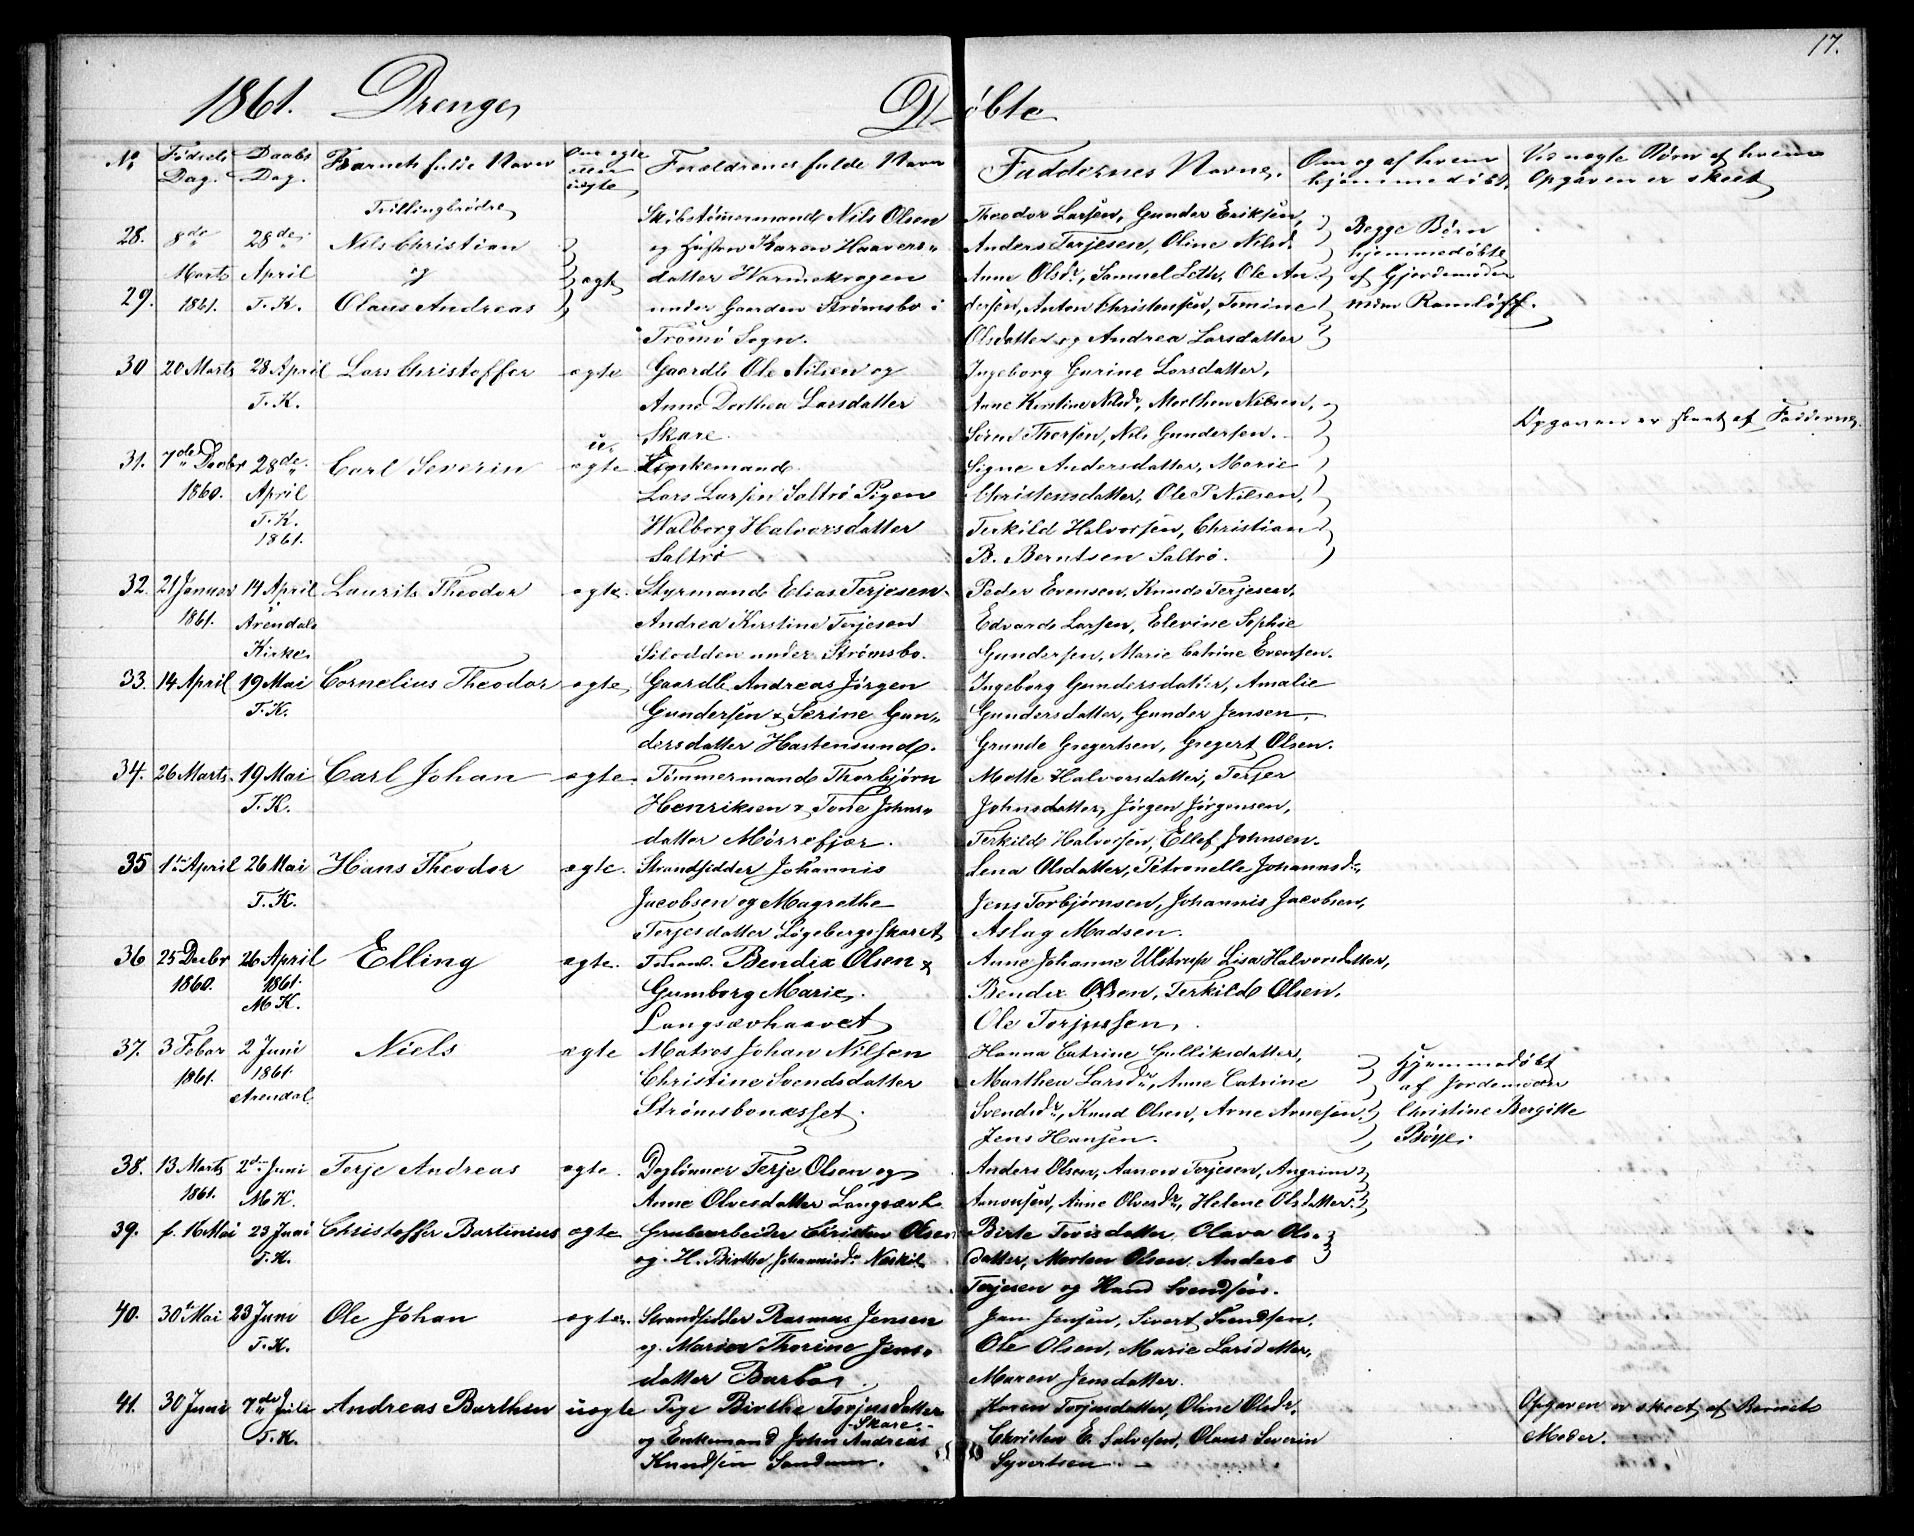 17.
1861. Drenge Døbte
No Fødsels Dag. Daabs Dag. Barnets fulde Navn Om egte eller uægte Forældrenes fulde Navn Faddernes Navne. Om og af hvem hjemmedøbt. Ved uegte Børn af hvem Opgaven er skeet
Tvillingbrødre
28. 8de Marts 1861. 28de April T. K. Nils Christian
og
29. Olaus Andreas
ægte
Skibstømermand Nils Olsen
og Hustru Karen Haavers-
datter Warmekrogen
under Gaarden Strømsbo i
Tromø Sogn.
Theodor Larsen, Gunder Eriksen,
Anders Torjesen, Oline Nilsd.
Anne Olsdr, Samuel Seth, Ole An-
dersen, Anton Christensen, Tomine
Olsdatter og Andrea Larsdatter
Begge Børn
hjemmedøbte
af Gjordemoder
30 20 Marts 28 April T. K. Lars Christoffer egte
Gaardb Ole Nilsen og
Anne Dorthea Larsdatter
Skare.
Ingeborg Gurine Larsdatter,
Anne Kirstine Nilsdr, Mathea Nilsen,
Søren Thorsen, Nils Gundersen.
Opgaven er skeet af Fadderne
31. 7de Decbr 1860. 28de April T. K. 1861. Carl Severin u. egte
Enkemand
Lars Larsen Saltrø Pigen
Walborg Halvorsdatter
Saltrø
Signe Andersdatter, Marie
Christensdatter, Ole P Nilsen,
Terkild Halvorsen, Christian
B. Berntsen Saltrø.
32. 21 Januar 1861. 14 April Arendals Kirke Laurits Theodor egte.
Styrmand Elias Terjesen
Andrea Kirstine Terjesen
Silodden under Strømsbo.
Peder Evensen, Knud Terjesen,
Edvard Larsen, Elevine Sophie
Gundersen, Marie Catrine Evensen.
33. 14 April 19 Mai T. K. Cornelius Theodor egte
Gaardb Andreas Jørgen
Gundersen & Serine Gun-
dersdatter Hastensund.
Ingeborg Gundersdatter, Amalie
Gundersdatter, Gunder Jensen,
Grunde Gregertsen, Gregert Olsen.
34. 26 Marts 19 Mai T. K. Carl Johan ægte
Tømmermand Thorbjørn
Henriksen & Tone Johns-
datter Mørrefjær.
Mette Halvorsdatter, Terjer
Johnsdatter, Jørgen Jørgensen,
Terkild Halvorsen, Ellef Johnsen.
35 1te April 26 Mai T. K. Hans Theodor ægte.
Strandsidder Johannis
Jacobsen og Magrethe
Terjesdatter Løgeberge Skaret
Lena Olsdatter, Petronelle Johannsdr,
Jens Torbjørnsen, Johannis Jacobsen,
Aslag Madsen.
36 25 Decbr 1860. 26 April 1861. M K. Elling ægte.
Bendix Olsen &
Gumborg Marie
Langsævhaavet
Anne Johanne Ulstrup Lisa Halvorsdatter,
Bendix Olsen, Terkild Olsen,
Ole Torjussen.
37. 3 Febar 1861. 2 Juni 1861 Arendal. Niels ægte
Matros Johan Nilsen
Christine Svendsdatter
Strømsbonæsset.
Hanna Catrine Gulliksdatter,
Marthea Larsdr, Anne Catrine
Svendsdr, Knud Olsen, Arne Arnesen,
Jens Hansen.
Hjemmedøbt
af Jordemoder
Christine Bergitte
38. 13 Marts 1861. 2den Juni M K. Terje Andreas egte.
Daglønner Terje Olsen og
Anne Olvesdatter Langsævh
Anders Olsen, Aanon Terjesen, Angrim
Aanonsen, Anne Olvesdr, Helene Olsdatter.
39. f. 16 Mai 23 Juni T. K. Christoffer Bartinius egte
Grubearbeider Christen Olsen
og H. Birthe Johannisdr. Neskil
Birte Tovisdatter, Olava Ols-
datter, Morten Olsen, Anders
Terjesen og Hand Svendsen.
40. 30te Mai 23 Juni T. K. Ole Johan egte.
Strandsidder Rasmus Jensen
og Maren Thorine Jens-
datter Barbo.
Jens Jensen, Sivert Svendsen,
Ole Olsen, Marie Larsdatter,
Maren Jensdatter.
41. 30 Juni 7de Juli T. K. Andreas Barthin uegte
Pige Birthe Torjusdatter
Skare
og Enkemand John Andreas
Knudsen Sandum.
Karen Torjusdatter, Oline Olsdr,
Christen E. Salvesen, Olaus Severin
Syvertsen
Opgaven er skeet af Barnets
Moder.